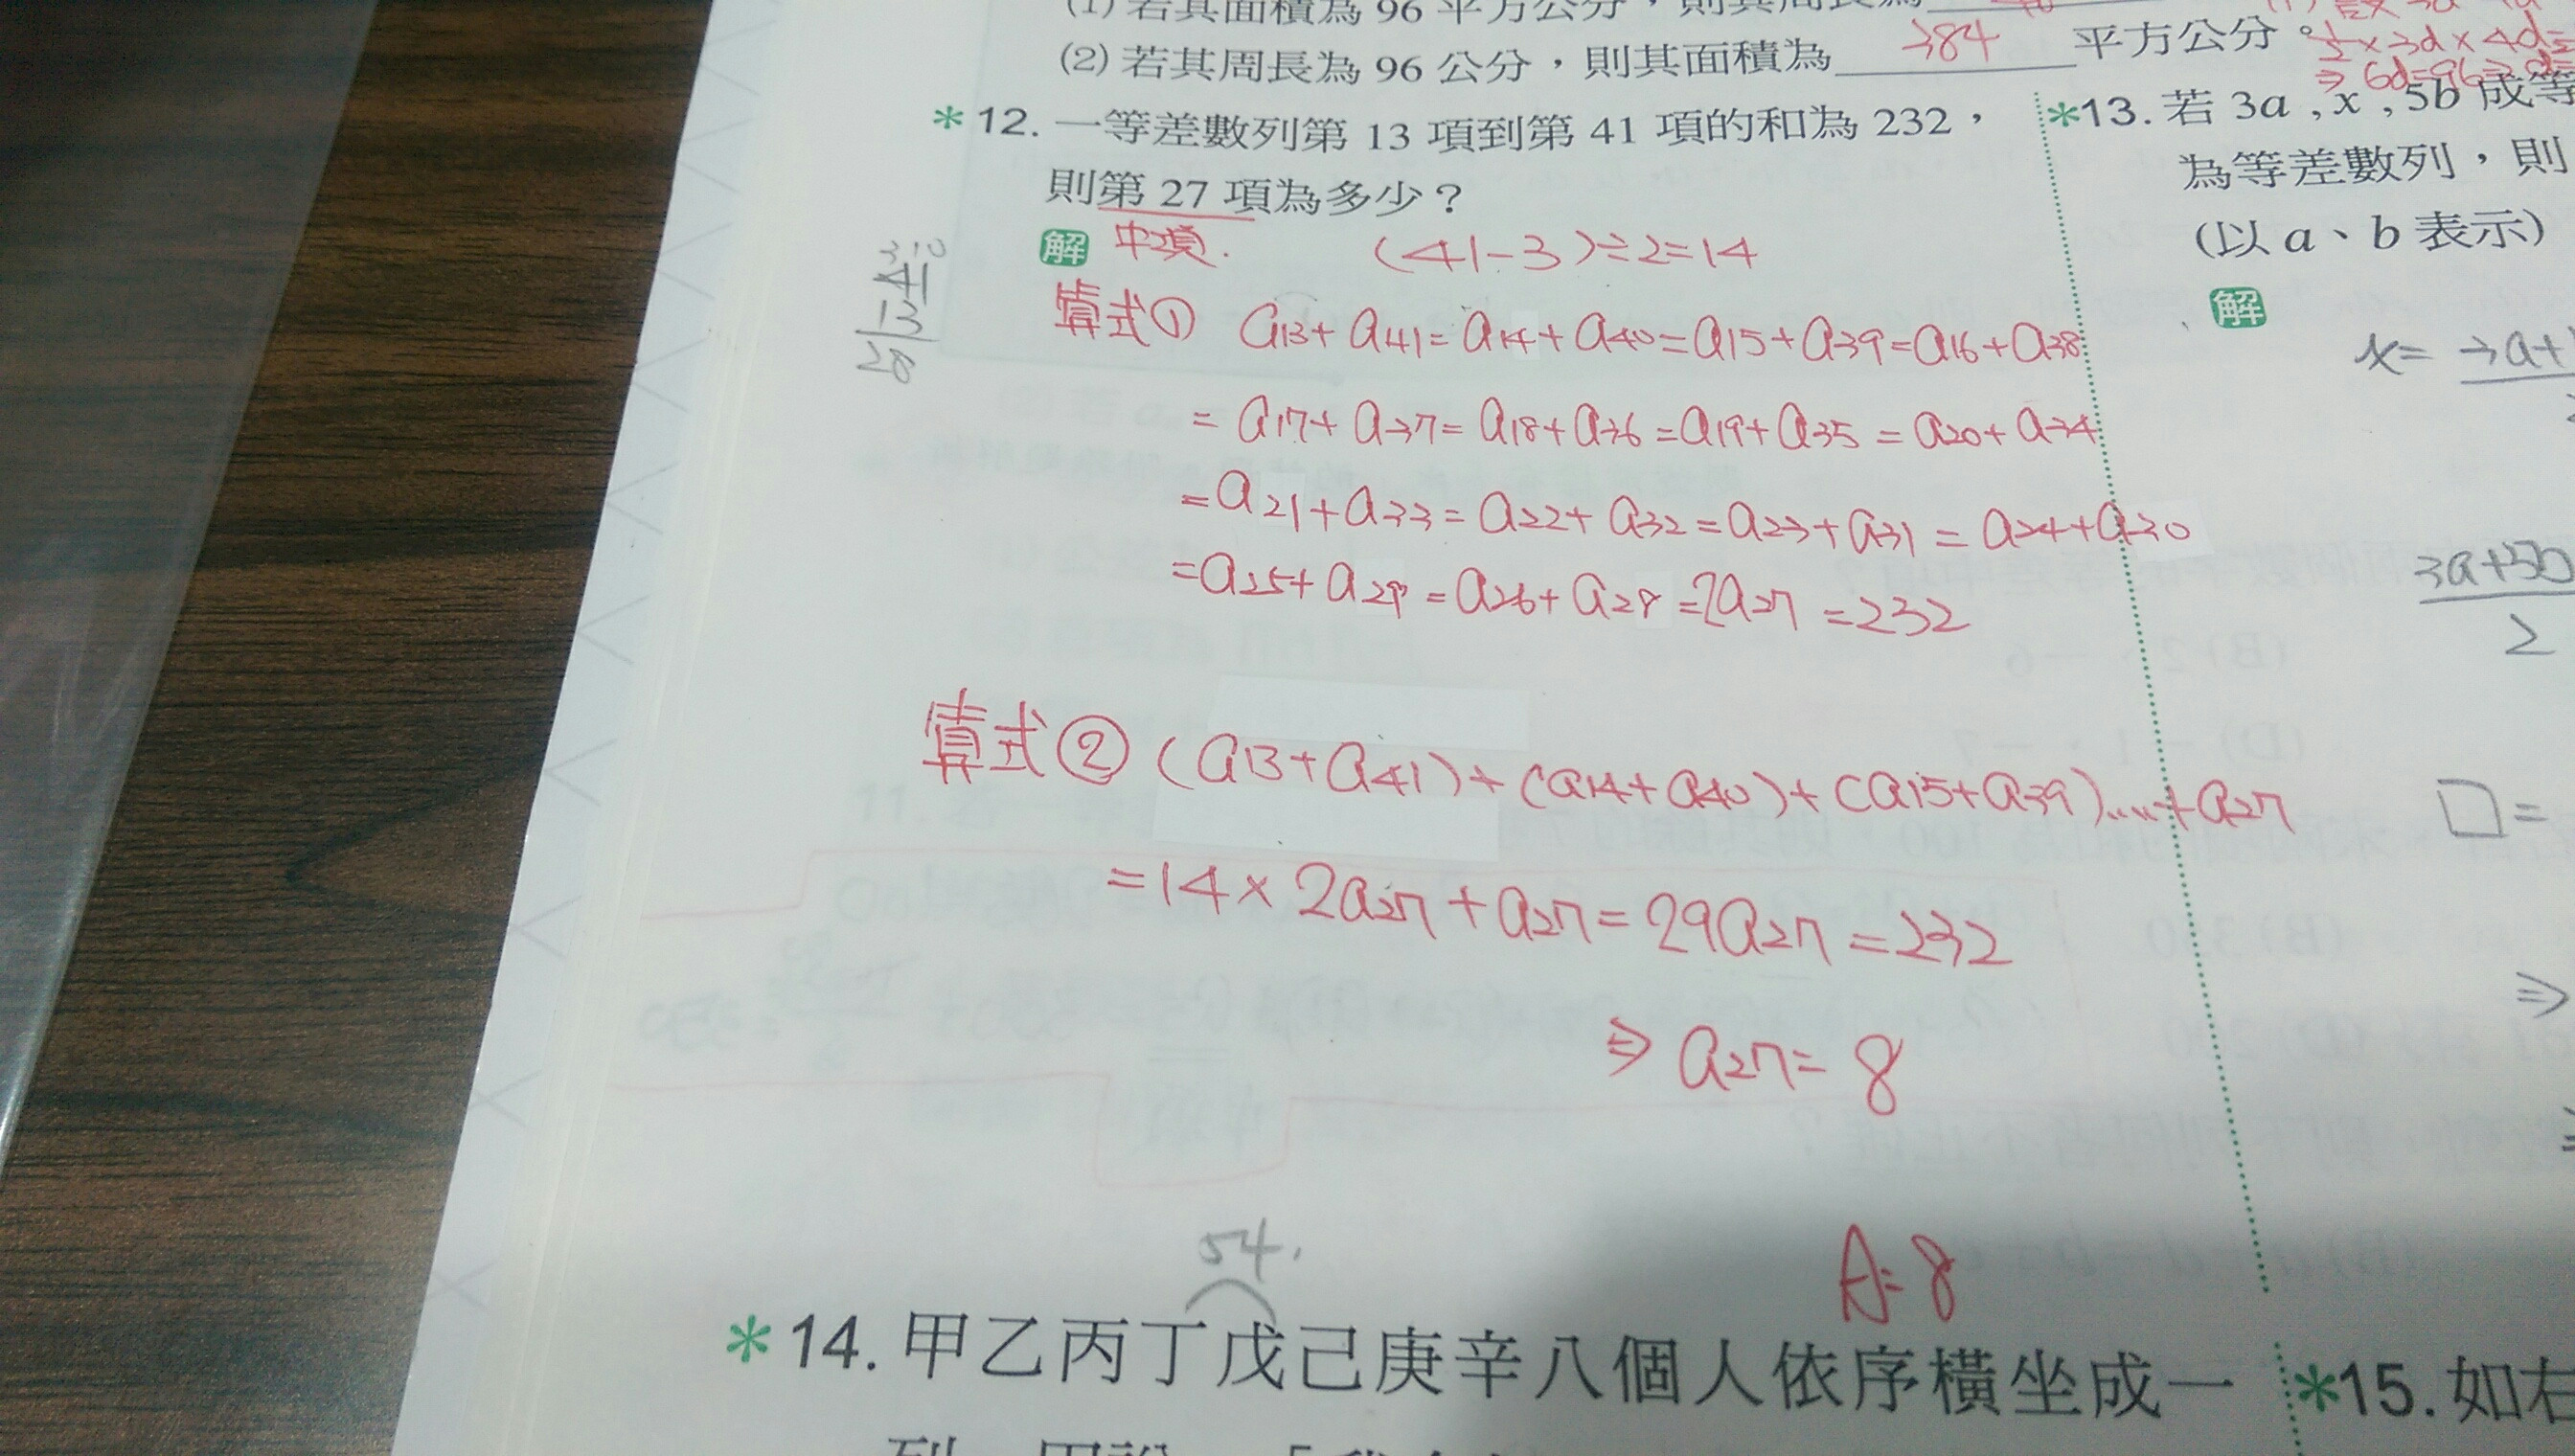 (1) 若其面積為 96 平方公分,則其周長為
(2) 若其周長為 96 公分,則其面積為 384 平方公分。
½×3d×4d=
⇒6d=96⇒d=
*12. 一等差數列第 13 項到第 41 項的和為 232,
則第 27 項為多少?
解 中項. (41-3)÷2=14
算式① a13+a41=a14+a40=a15+a39=a16+a38
=a17+a37=a18+a36=a19+a35=a20+a34
=a21+a33=a22+a32=a23+a31=a24+a30
=a25+a29=a26+a28=2a27=232
算式② (a13+a41)+(a14+a40)+(a15+a39)....+a27
=14×2a27+a27=29a27=232
⇒a27=8
A:8
*13. 若 3a , x , 5b 成等
為等差數列,則
(以 a、b 表示)
解
x=3a+
3a+5b
2
□=
⇒
54.
*14. 甲乙丙丁戊己庚辛八個人依序橫坐成一
*15. 如右